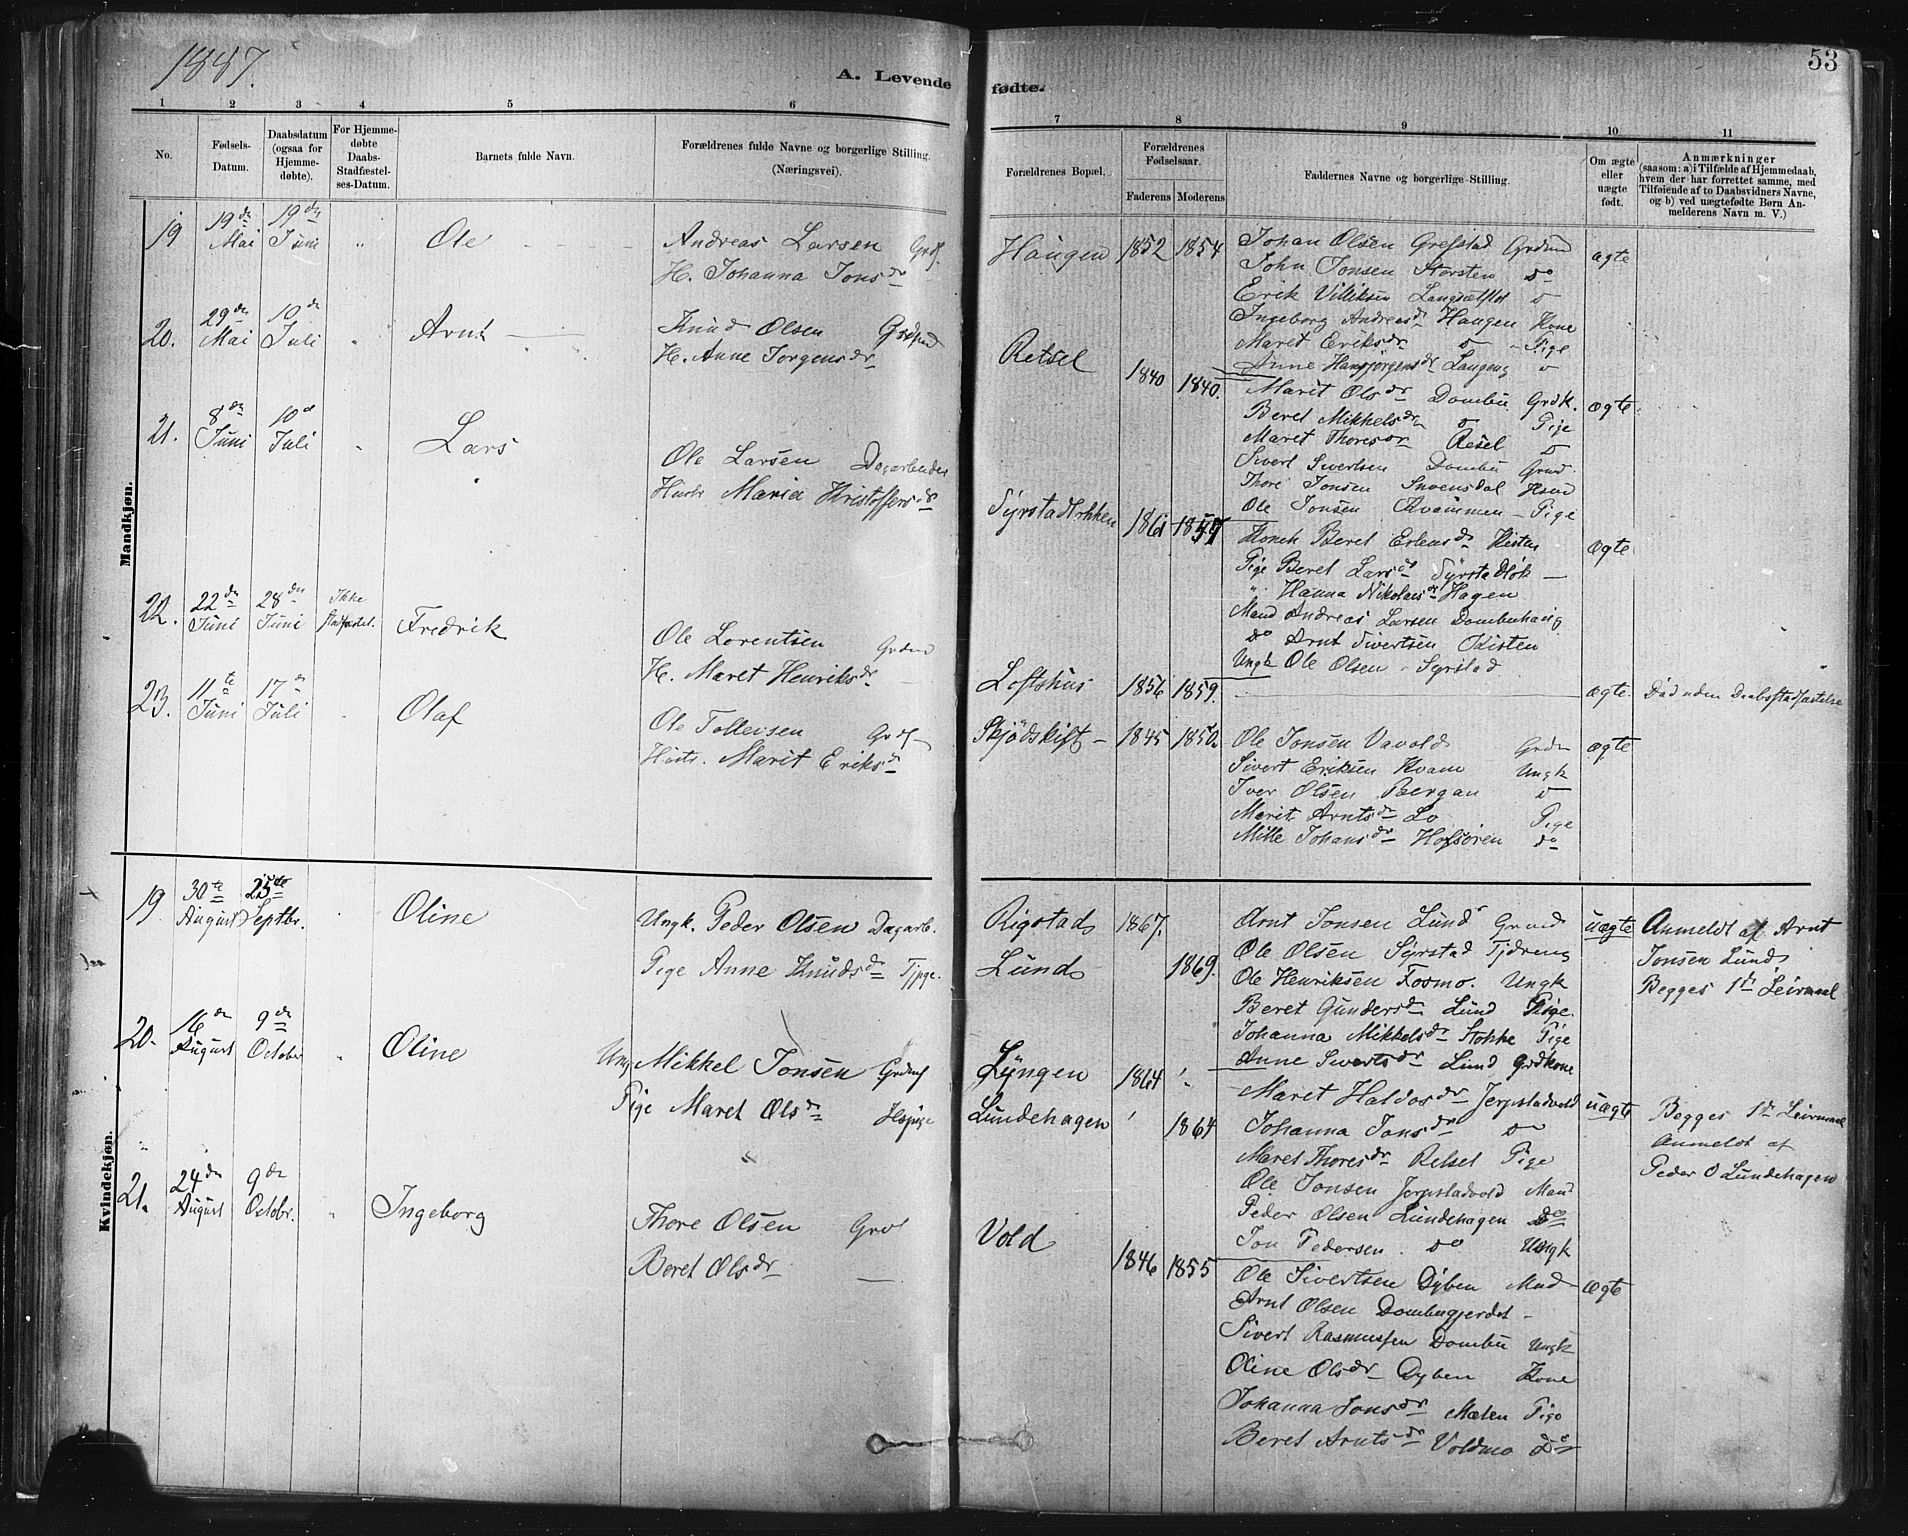 1887.
A. Levende
fødte.
53
1 2 3 4 5 6
7 8 9 10 11
No.
Fødsels-Datum.
Daabsdatum (ogsaa for Hjemmedøbte).
For Hjemmedøbte Daabs-Stadfæstelses-Datum.
Barnets fulde Navn.
Forældrenes fulde Navne og borgerlige Stilling.
(Næringsvei).
Forældrenes Bopæl.
Forældrenes Fødselsaar.
Faderens Moderens
Faddernes Navne og borgerlige Stilling.
Om ægte eller uægte født.
Anmærkninger
(saasom: a) i Tilfælde af Hjemmedaab,
hvem der har forrettet samme, med
Tilføiende af to Daabsvidners Navne,
og b) ved uægtefødte Børn An-
melderens Navn m. V.)
Mandkjøn.
19 19de Mai 19de Juni " Ole
Andreas Larsen
H. Johanna Jonsdr
Haugen 1852 1854
Johan Olsen Grefstad Grdmd
John Jonsen Storsten do
Erik Villiksen
Ingeborg Andreasdr Haugen Kone
Maret Eriksdr Pige
Anne Hansjørgensdr Langeng
ægte
20. 29de Mai 10de Juli " Arnt
Knud Olsen
H. Anne Jorgensdr
Retsel 1840 1840.
Marit Olsdr Dombu Grdk.
Beret Mikkelsdr Pige
Maret Thoresdr Resel
Sivert Sivertsen Dombu
Thore Jonsen
Ole Jonsen Kvammen Pige
ægte
21. 8de Juni 10de Juli " Lars
Ole Larsen Dagarbeider
Hustr Maria Kristoffersdr
1861 1857
Beret
Pige Beret Larsdr
" Hanna Nikolaisdr Hagen
Mand Andreas Larsen Dombuhaug
do Arnt Sivertsen Kisten
Ungk Ole Olsen Syrstad
ægte
22. 22de Juni 28de Juni Ikke stadfæstet. Fredrik
Ole Lorentsen
H. Maret Henriksdr
Loftshus 1856 1859.
ægte. Død uden Daabsstadfæstelse
23. 11te Juni 17de Juli Olaf
Ole Tollevsen
Hustr. Marit Eriksdr
Skjødskift 1845 1850.
Ole Jonsen Vavold
Sivert Eriksen Kvam Ungk
Iver Olsen Bergan
Marit Arntsdr Lo Pige
Mille Johansdr Hofsøren do
ægte
Kvindekjøn.
19 30te August 25de Septbr. Oline
Ungk. Peder Olsen Dagarb.
Pige Anne Knudsdr Tjpge.
Rigstad 1867.
Lund 1869.
Arnt Jonsen Lund
Ole Olsen Syrstad Tjdreng
Ole Henriksen Fosmo. Ungk
Beret Gundersdr Lund Pige.
Johanna Mikkelsdr Stokke Pige
Anne Sivertsdr Lund Grdkone
uægte
Anmeldt af Arnt
Jonsen Lund
Begges 1ste Leirmaal
20. 16de August 9de Octobr " Oline
Ung Mikkel Jonsen
Pige Maret Olsdr
Lyngen 1864 "
Lundehagen " 1864
Maret Haldosdr Jerpstadvold
Johanna Jonsdr do
Maret Thoresdr Retsel Pige
Ole Jonsen Jerpstadvold Mand
Peder Olsen Lundehagen Do
Jon Pedersen. do Ungk
uægte
Begges 1ste Leirmaal
Anmeldt af
Peder O Lundehagen
21. 24de August 9de Octobr. " Ingeborg
Thore Olsen
Beret Olsdr
Vold 1846 1855
Ole Sivertsen Dyben
Arnt Olsen Dombugjerdet
Sivert Rasmussen Dombu Ungk
Oline Olsdr Dyben Kone
Johanna Jonsdr Mælen Pige
Beret Arntsdr Voldmo Do
ægte